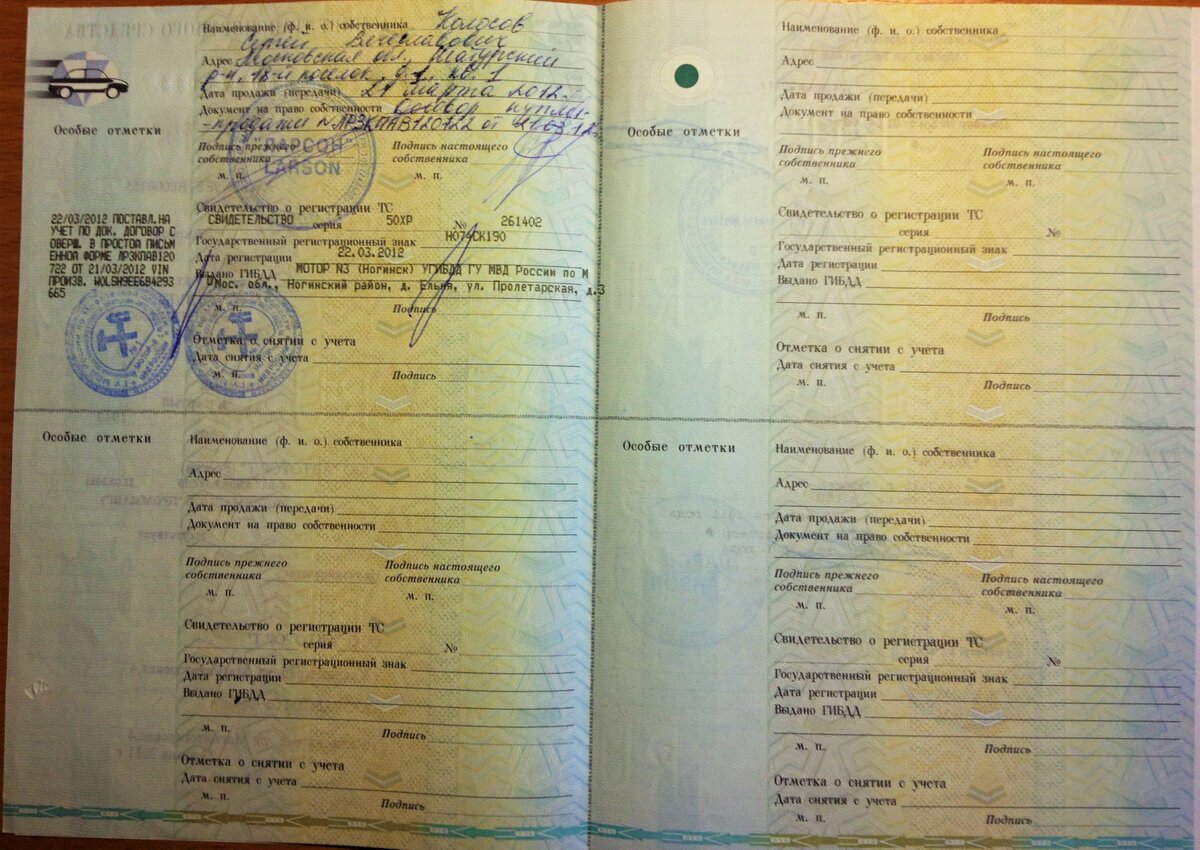 Особые отметки
22/03/2012 ПОСТАВЛ.НА
УЧЕТ ПО ДОК. ДОГОВОР С
ОВЕРШ. В ПРОСТОЙ ПИСЬМ
ЕННОЙ ФОРМЕ ЛРЗКПАВ120
722 ОТ 21/03/2012 VIN
ПРОИЗВ. W0LSH9EE6B4293
665
Наименование (ф. и. о.) собственника Колосов
Сергей Вячеславович
Адрес Московская обл., Шатурский
р-н, 18-й поселок, д.1, кв. 1
Дата продажи (передачи) 21 марта 2012
Документ на право собственности Договор купли-
-продажи №ЛРЗКПАВ120122 от 21.03.12
Подпись прежнего собственника
Подпись настоящего собственника
LARSON
м. п.
м. п.
Свидетельство о регистрации ТС
СВИДЕТЕЛЬСТВО серия 50ХР № 261402
Государственный регистрационный знак Н074СК190
Дата регистрации 22.03.2012
Выдано ГИБДД МОТОР N3 (Ногинск) УГИБДД ГУ МВД России по М
Мос. обл., Ногинский район, д. Ельня, ул. Пролетарская, д.3
м. п. Подпись
Отметка о снятии с учета
Дата снятия с учета
м. п. Подпись
Особые отметки
Наименование (ф. и. о.) собственника
Адрес
Дата продажи (передачи)
Документ на право собственности
Подпись прежнего собственника
Подпись настоящего собственника
м. п.
м. п.
Свидетельство о регистрации ТС
серия №
Государственный регистрационный знак
Дата регистрации
Выдано ГИБДД
м. п. Подпись
Отметка о снятии с учета
Дата снятия с учета
м. п. Подпись
Особые отметки
Наименование (ф. и. о.) собственника
Адрес
Дата продажи (передачи)
Документ на право собственности
Подпись прежнего собственника
Подпись настоящего собственника
м. п.
м. п.
Свидетельство о регистрации ТС
серия №
Государственный регистрационный знак
Дата регистрации
Выдано ГИБДД
м. п. Подпись
Отметка о снятии с учета
Дата снятия с учета
м. п. Подпись
Особые отметки
Наименование (ф. и. о.) собственника
Адрес
Дата продажи (передачи)
Документ на право собственности
Подпись прежнего собственника
Подпись настоящего собственника
м. п.
м. п.
Свидетельство о регистрации ТС
серия №
Государственный регистрационный знак
Дата регистрации
Выдано ГИБДД
м. п. Подпись
Отметка о снятии с учета
Дата снятия с учета
м. п. Подпись